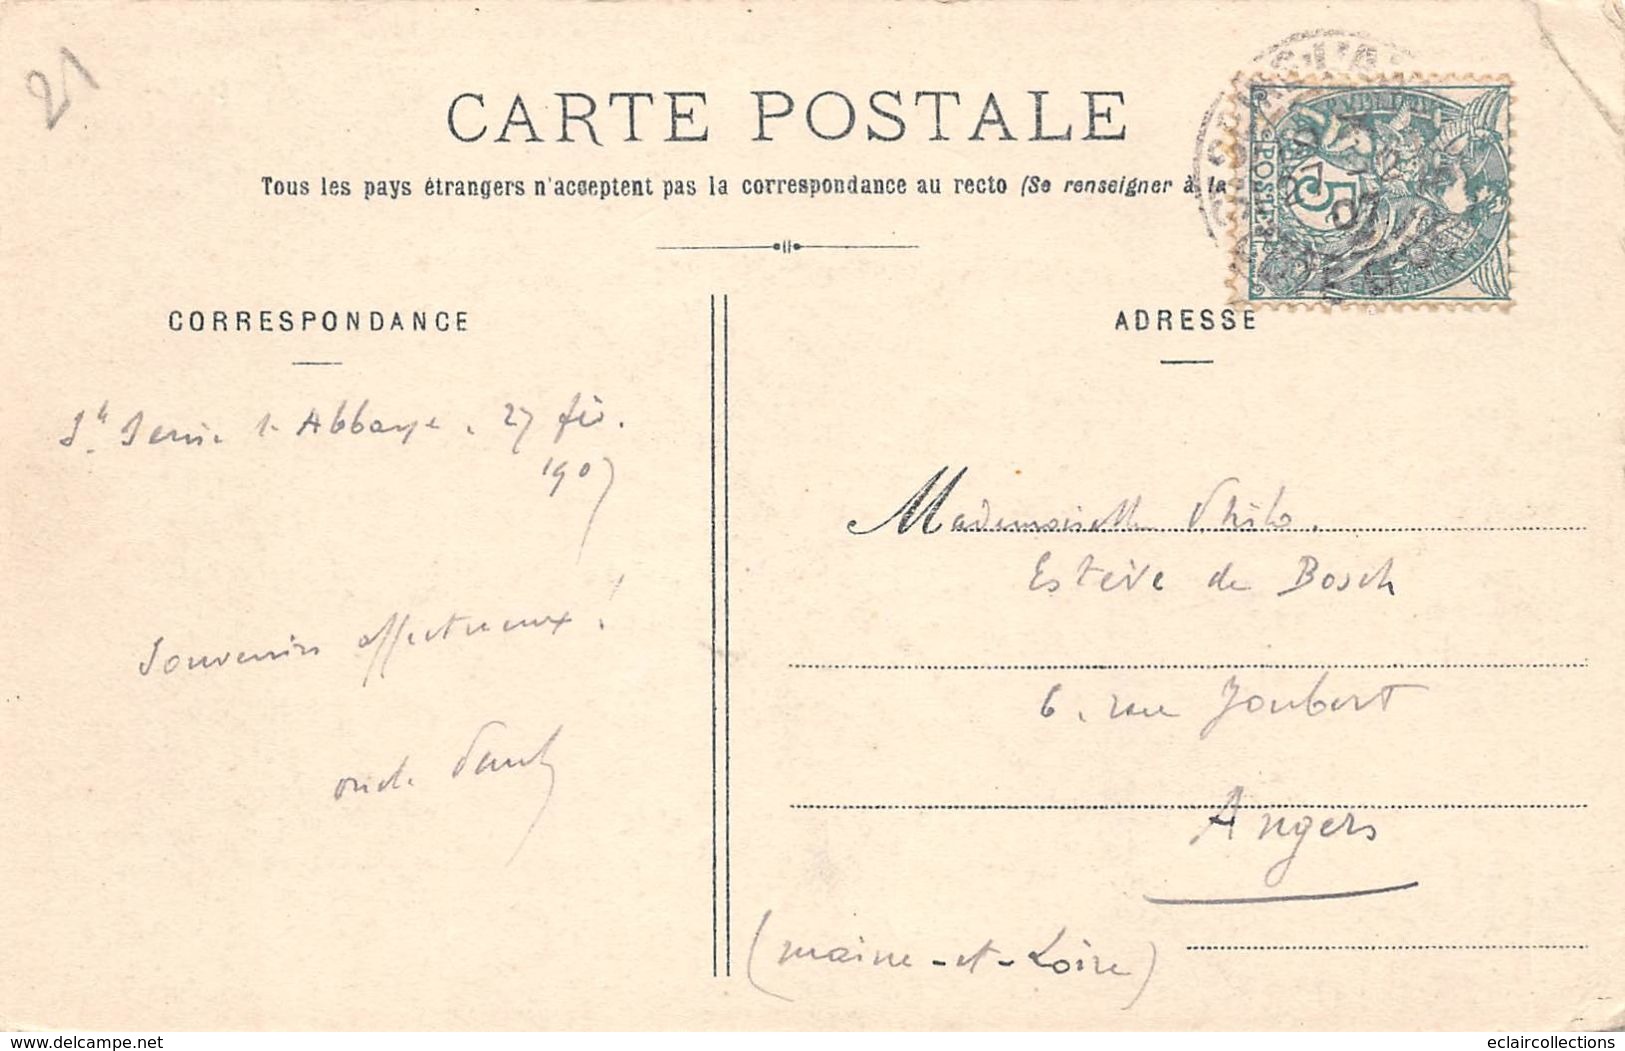 21
CARTE POSTALE
Tous les pays étrangers n'acceptent pas la correspondance au recto (Se renseigner à la
POSTES
5
27
07
CORRESPONDANCE
ADRESSE
Abbaye. 27 fév.
1907
Mademoiselle Philo.
Estève de Bosch
Souvenirs affectueux!
6. rue Joubert
oncle Paul
Angers
(Maine-et-Loire)
www.delcampe.net
eclaircollections